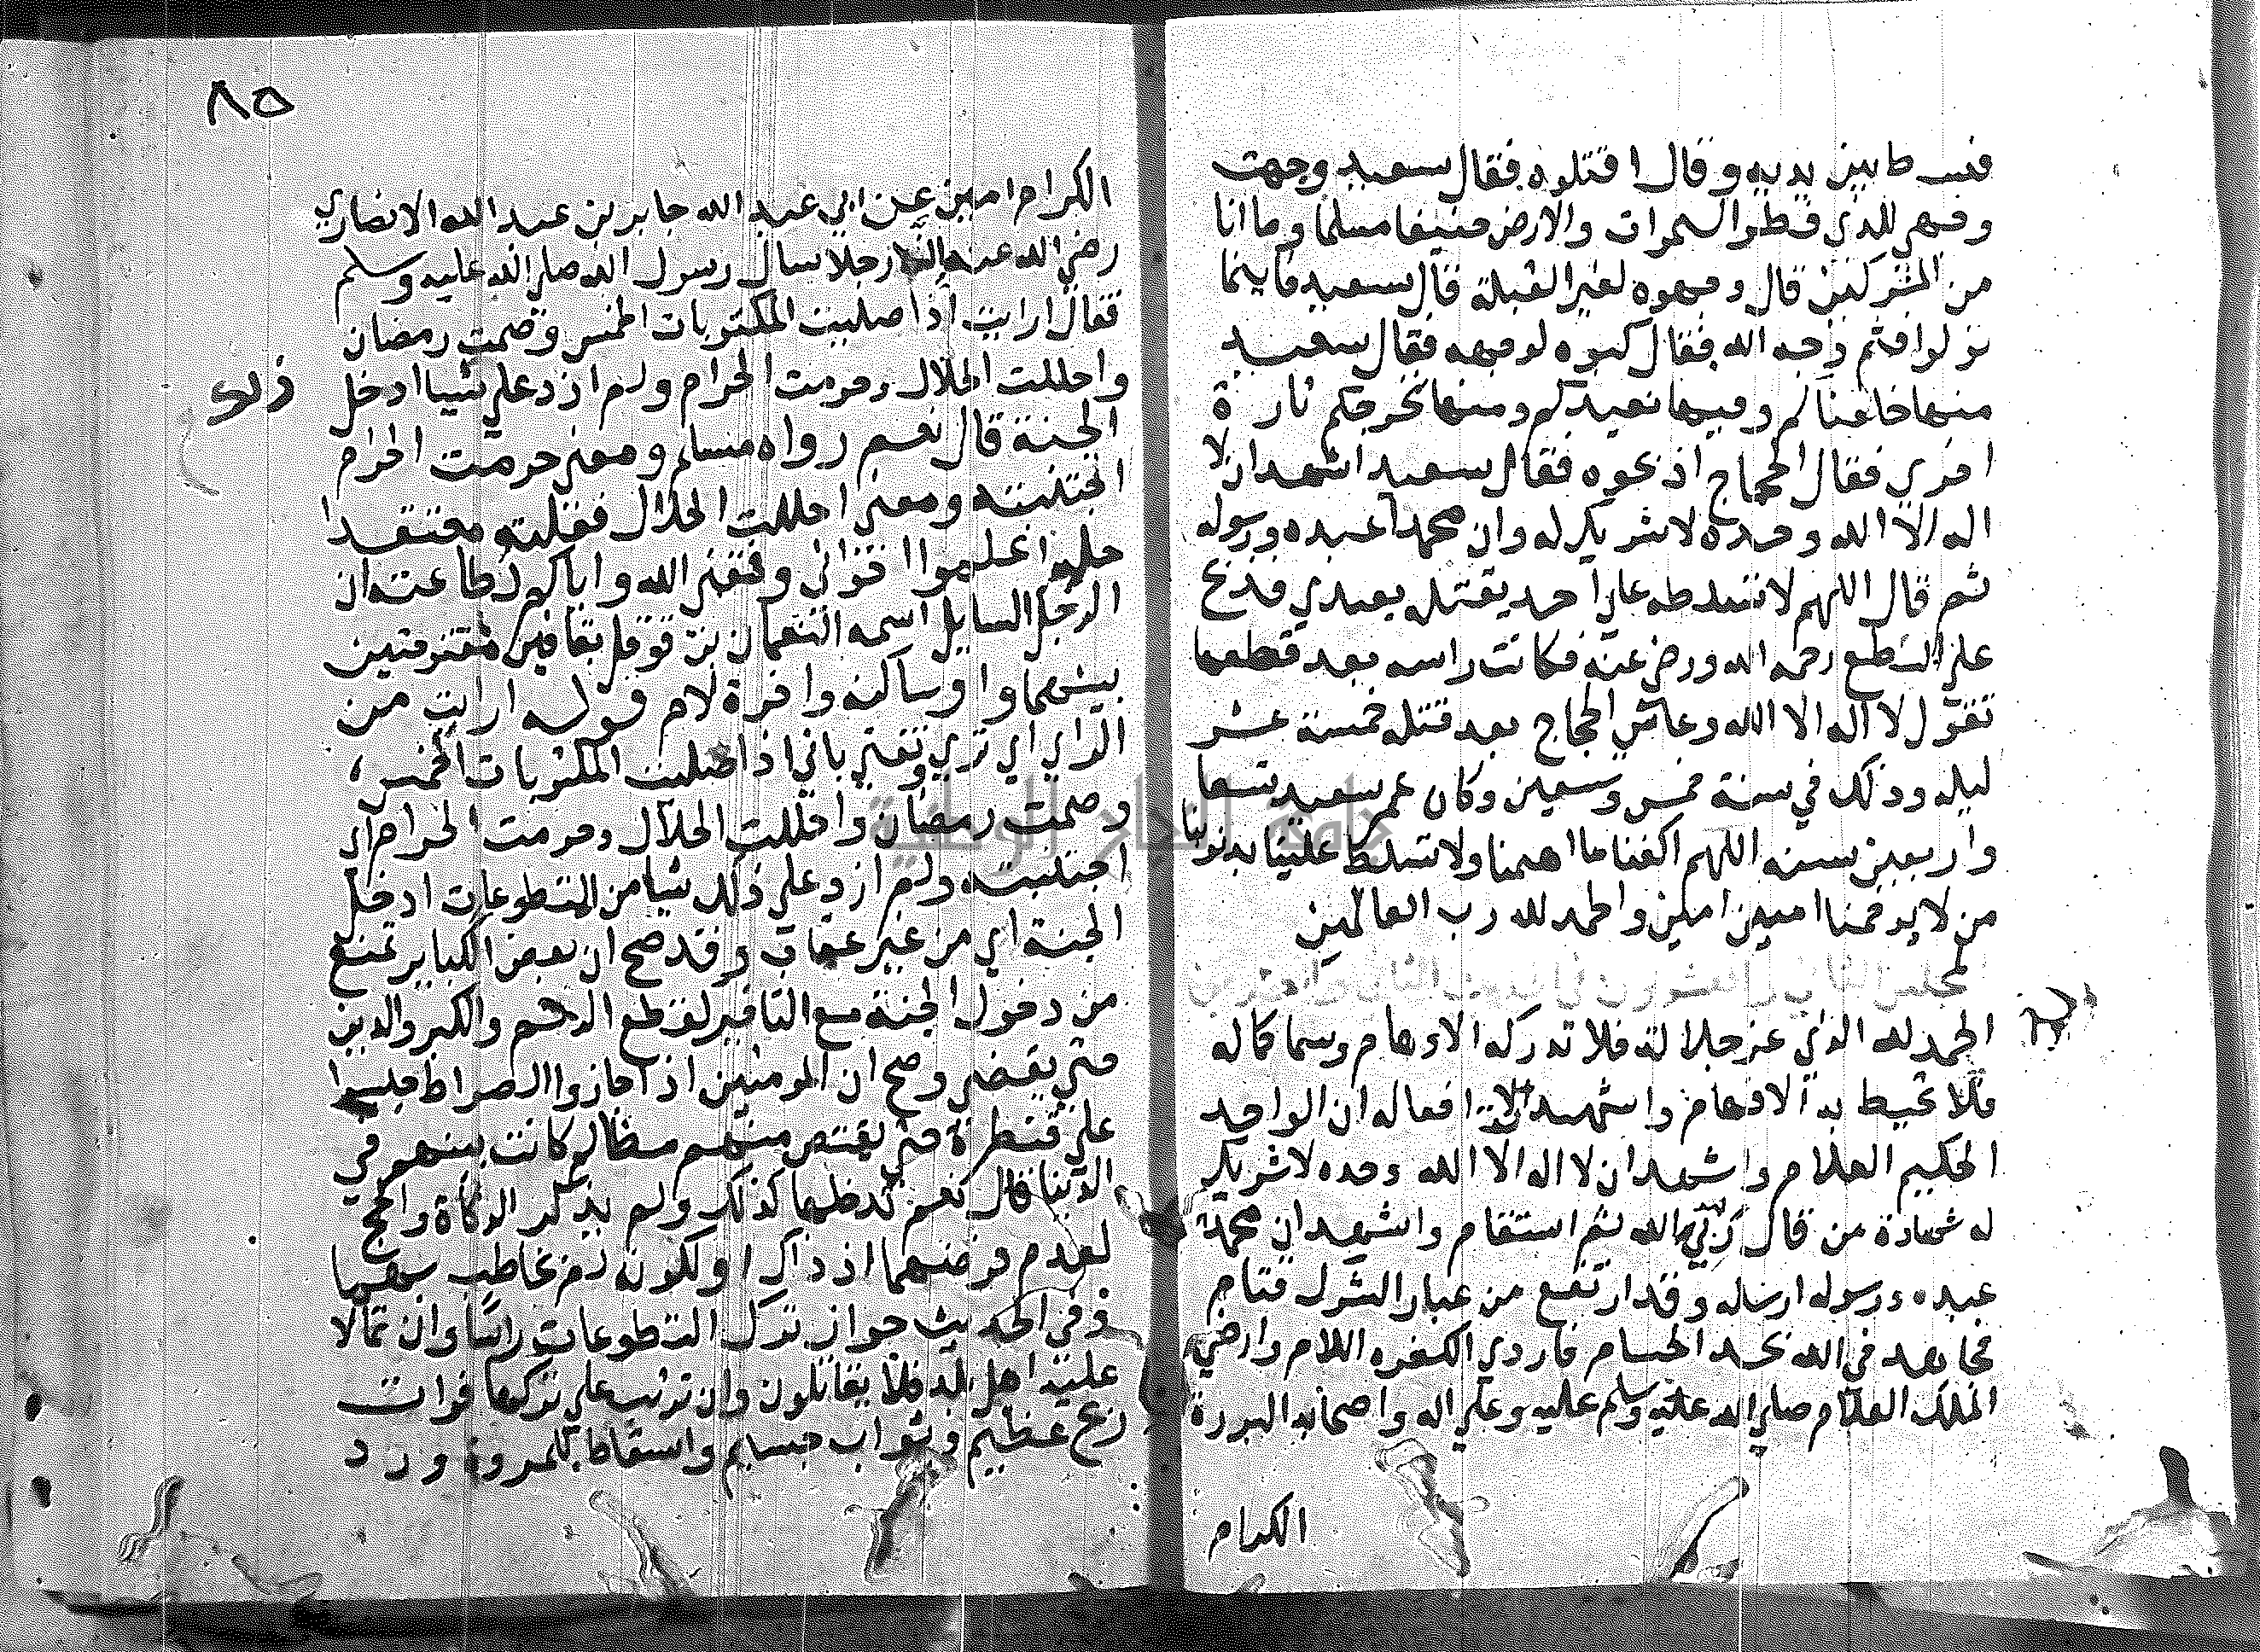 فبسط بين يديه وقال اقتلوه فقال سعيد وجهت
وجهي للذي فطر السموات والارض حنيفا مسلما وما انا
من المشركين قال وجهوه لغير القبلة قال سعيد فاينما
تولوا فثم وجه الله فقال كبوه لوجهه فقال سعيد
منها خلقناكم وفيها نعيدكم ومنها نخرجكم تارة
اخري فقال الحجاج اذبحوه فقال سعيد اشهد ان لا
اله الا الله وحده لا شريك له وان محمدا عبده ورسوله
ثم قال اللهم لا تسلطه علي احد يقتله بعدي فذبح
علي النطع رحمه الله ورضي عنه فكانت راسه بعد قطعها
تقول لا اله الا الله وعاش الحجاج بعد قتله خمسة عشر
ليله وذلك في سنة خمس وتسعين وكان عمر سعيد تسعا
واربعين سنه اللهم اكفنا ما اهمنا ولا تسلط علينا بذنوبنا
من لا يرحمنا امين امين والحمد لله رب العالمين
المجلس الثاني والعشرون في الحديث الثاني والعشرين
الحمد لله الذي عز جلاله فلا تدركه الاوهام وسما كماله
فلا تحيط به الافهام وشهدت افعاله ان الواحد
الحكيم العلام واشهد ان لا اله الا الله وحده لا شريك
له شهادة من قال ربي الله ثم استقام واشهد ان محمدا
عبده ورسوله ارسله وقد ارتفع من غبار الشرك قتام
فجاهد في الله بحد الحسام فاردي الكفره اللام وارضي
الملك العلام صلي الله عليه وسلم عليه وعلي اله واصحابه البررة
الكرام
٨٥
الكرام امين عن ابي عبد الله جابر بن عبد الله الانصاري
رضي الله عنه ان رجلا سال رسول الله صلي الله عليه وسلم
فقال ارايت اذا صليت المكتوبات الخمس وصمت رمضان
واحللت الحلال وحرمت الحرام ولم ازد علي شيا ادخل
ذلك
الجنة قال نعم رواه مسلم ومعني حرمت الحرام
اجتنبته ومعني احللت الحلال فعلته معتقدا
حله اعلموا اخواني وفقني الله واياكم لطاعته ان
الرجل السايل اسمه النعمان بن قوقل بقافين مفتوحتين
بينهما واو ساكنه واخره لام قوله ارايت من
الراي اي تري وتفتي باني اذا صليت المكتوبات الخمس
وصمت رمضان واحللت الحلال وحرمت الحرام اي
اجتنبته ولم ازد علي ذلك شيا من التطوعات ادخل
الجنة اي من غير عقاب وقد صح ان بعض الكباير تمنع
من دخول الجنة مع كقطع الرحم والكبر والدين
حتي يقضي وصح ان المومنين اذا جازوا الصراط حبسوا
علي قنطرة حتي يقتص منهم مظالم كانت بينهم في
الدنيا قال نعم تدخلها كذلك ولم يذكر الزكاة والحج
لعدم فرضهما اذ ذاك او لكونه لم يخاطب بهما
وفي الحديث جواز ترك التطوعات راسا وان تمالا
عليه اهل بلد فلا يقاتلون وان ترتب علي تركها فوات
ربح عظيم وثواب جسيم واسقاط للمروة ورد